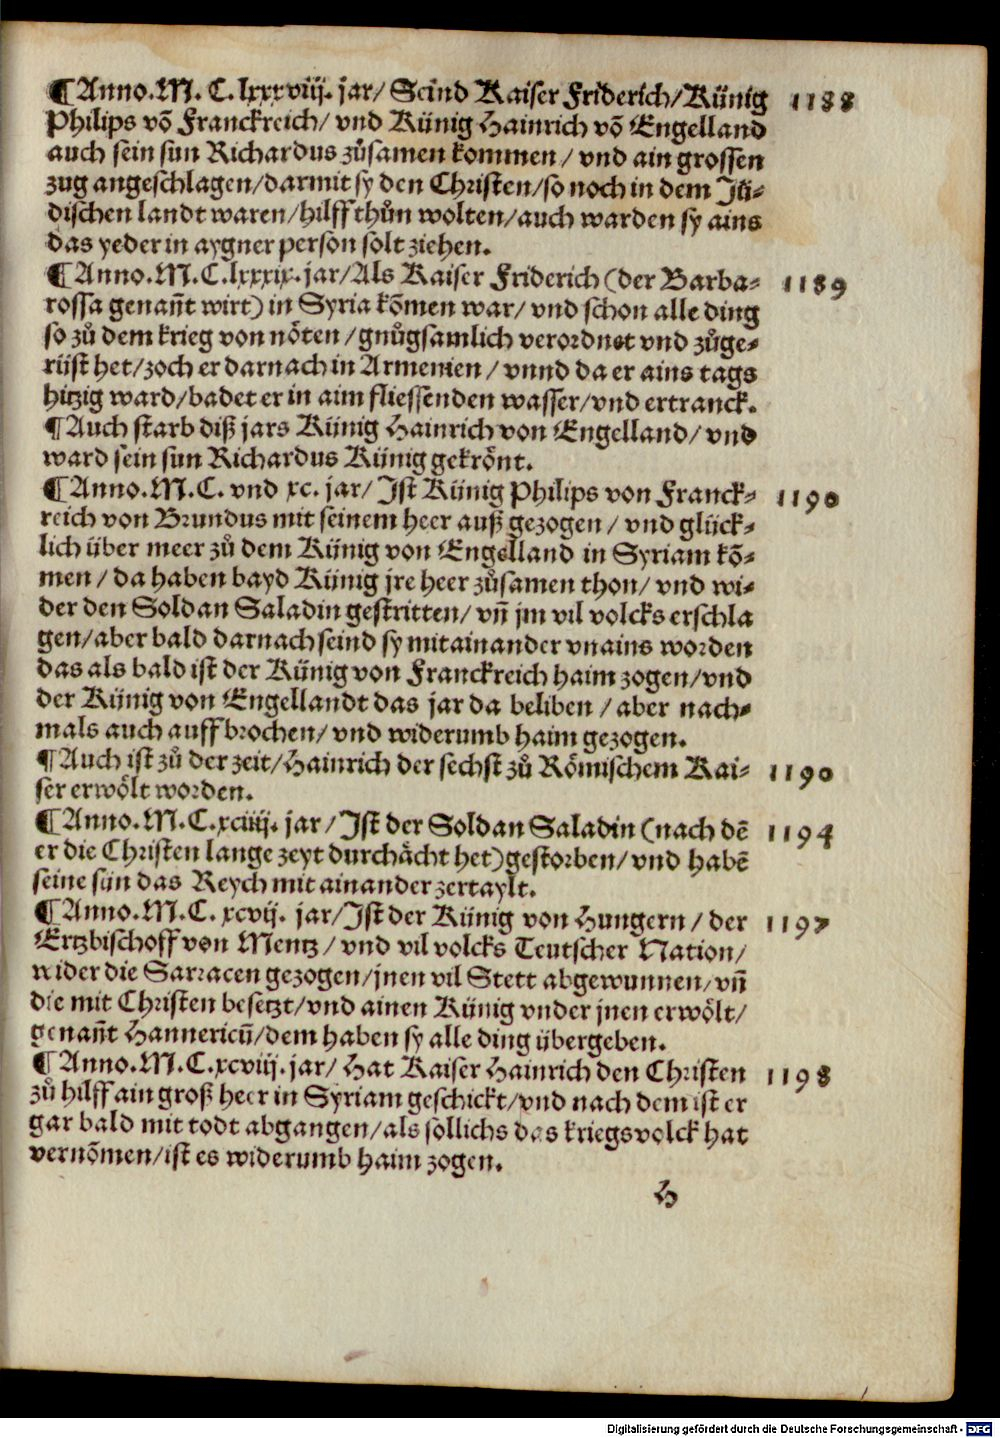 ¶Anno. M. C. lxxxviij. jar/ Seind Kaiser Friderich/Künig 1188
Philips võ Franckreich/ vnd Künig Hainrich võ Engelland
auch sein sun Richardus zůsamen kommen/ vnd ain grossen
zug angeschlagen/darmit sy den Christen/so noch in dem Jü⸗
dischen landt waren/hilff thůn wolten/auch warden sy ains
das yeder in aygner person solt ziehen.
¶Anno. M. C. lxxxix. jar/Als Kaiser Friderich (der Barba⸗ 1189
rossa genañt wirt) in Syria kõmen war/ vnd schon alle ding
so zů dem krieg von nöten/gnůgsamlich verordnet vnd zůge⸗
rüst het/zoch er darnach in Armenien/ vnnd da er ains tags
hitzig ward/badet er in aim fliessenden wasser/vnd ertranck.
¶Auch starb diß jars Künig Hainrich von Engelland/ vnd
ward sein sun Richardus Künig gekrönt.
¶Anno. M. C. vnd xc. jar/ Jst Künig Philips von Franck⸗ 1190
reich von Brundus mit seinem heer auß gezogen/ vnd glück⸗
lich über meer zů dem Künig von Engelland in Syriam kõ⸗
men/ da haben bayd Künig jre heer zůsamen thon/ vnd wi⸗
der den Soldan Saladin gestritten/ vñ jm vil volcks erschla
gen/aber bald darnach seind sy mitainander vnains worden
das als bald ist der Künig von Franckreich haim zogen/vnd
der Künig von Engellandt das jar da beliben/ aber nach⸗
mals auch auff brochen/ vnd widerumb haim gezogen.
¶Auch ist zů der zeit/Hainrich der sechst zů Römischem Kai⸗ 1190
ser erwölt worden.
¶Anno. M. C. xciiij. jar/Jst der Soldan Saladin (nach dē 1194
er die Christen lange zeyt durchächt het)gestorben/vnd habē
seine sün das Reych mit ainander zertaylt.
¶Anno. M. C. xcvij. jar/Jst der Künig von Hungern/ der 1197
Ertzbischoff von Mentz/ vnd vil volcks Teutscher Nation/
wider die Sarracen gezogen/jnen vil Stett abgewunnen/vñ
die mit Christen besetzt/vnd ainen Künig vnder jnen erwölt/
genañt Hannericũ/dem haben sy alle ding übergeben.
¶Anno. M. C. xcviij. jar/ Hat Kaiser Hainrich den Christen 1198
zů hilff ain groß heer in Syriam geschickt/vnd nach dem ist er
gar bald mit todt abgangen/als sollichs das kriegsvolck hat
vernõmen/ist es widerumb haim zogen.
H
Digitalisierung gefördert durch die Deutsche Forschungsgemeinschaft - DFG